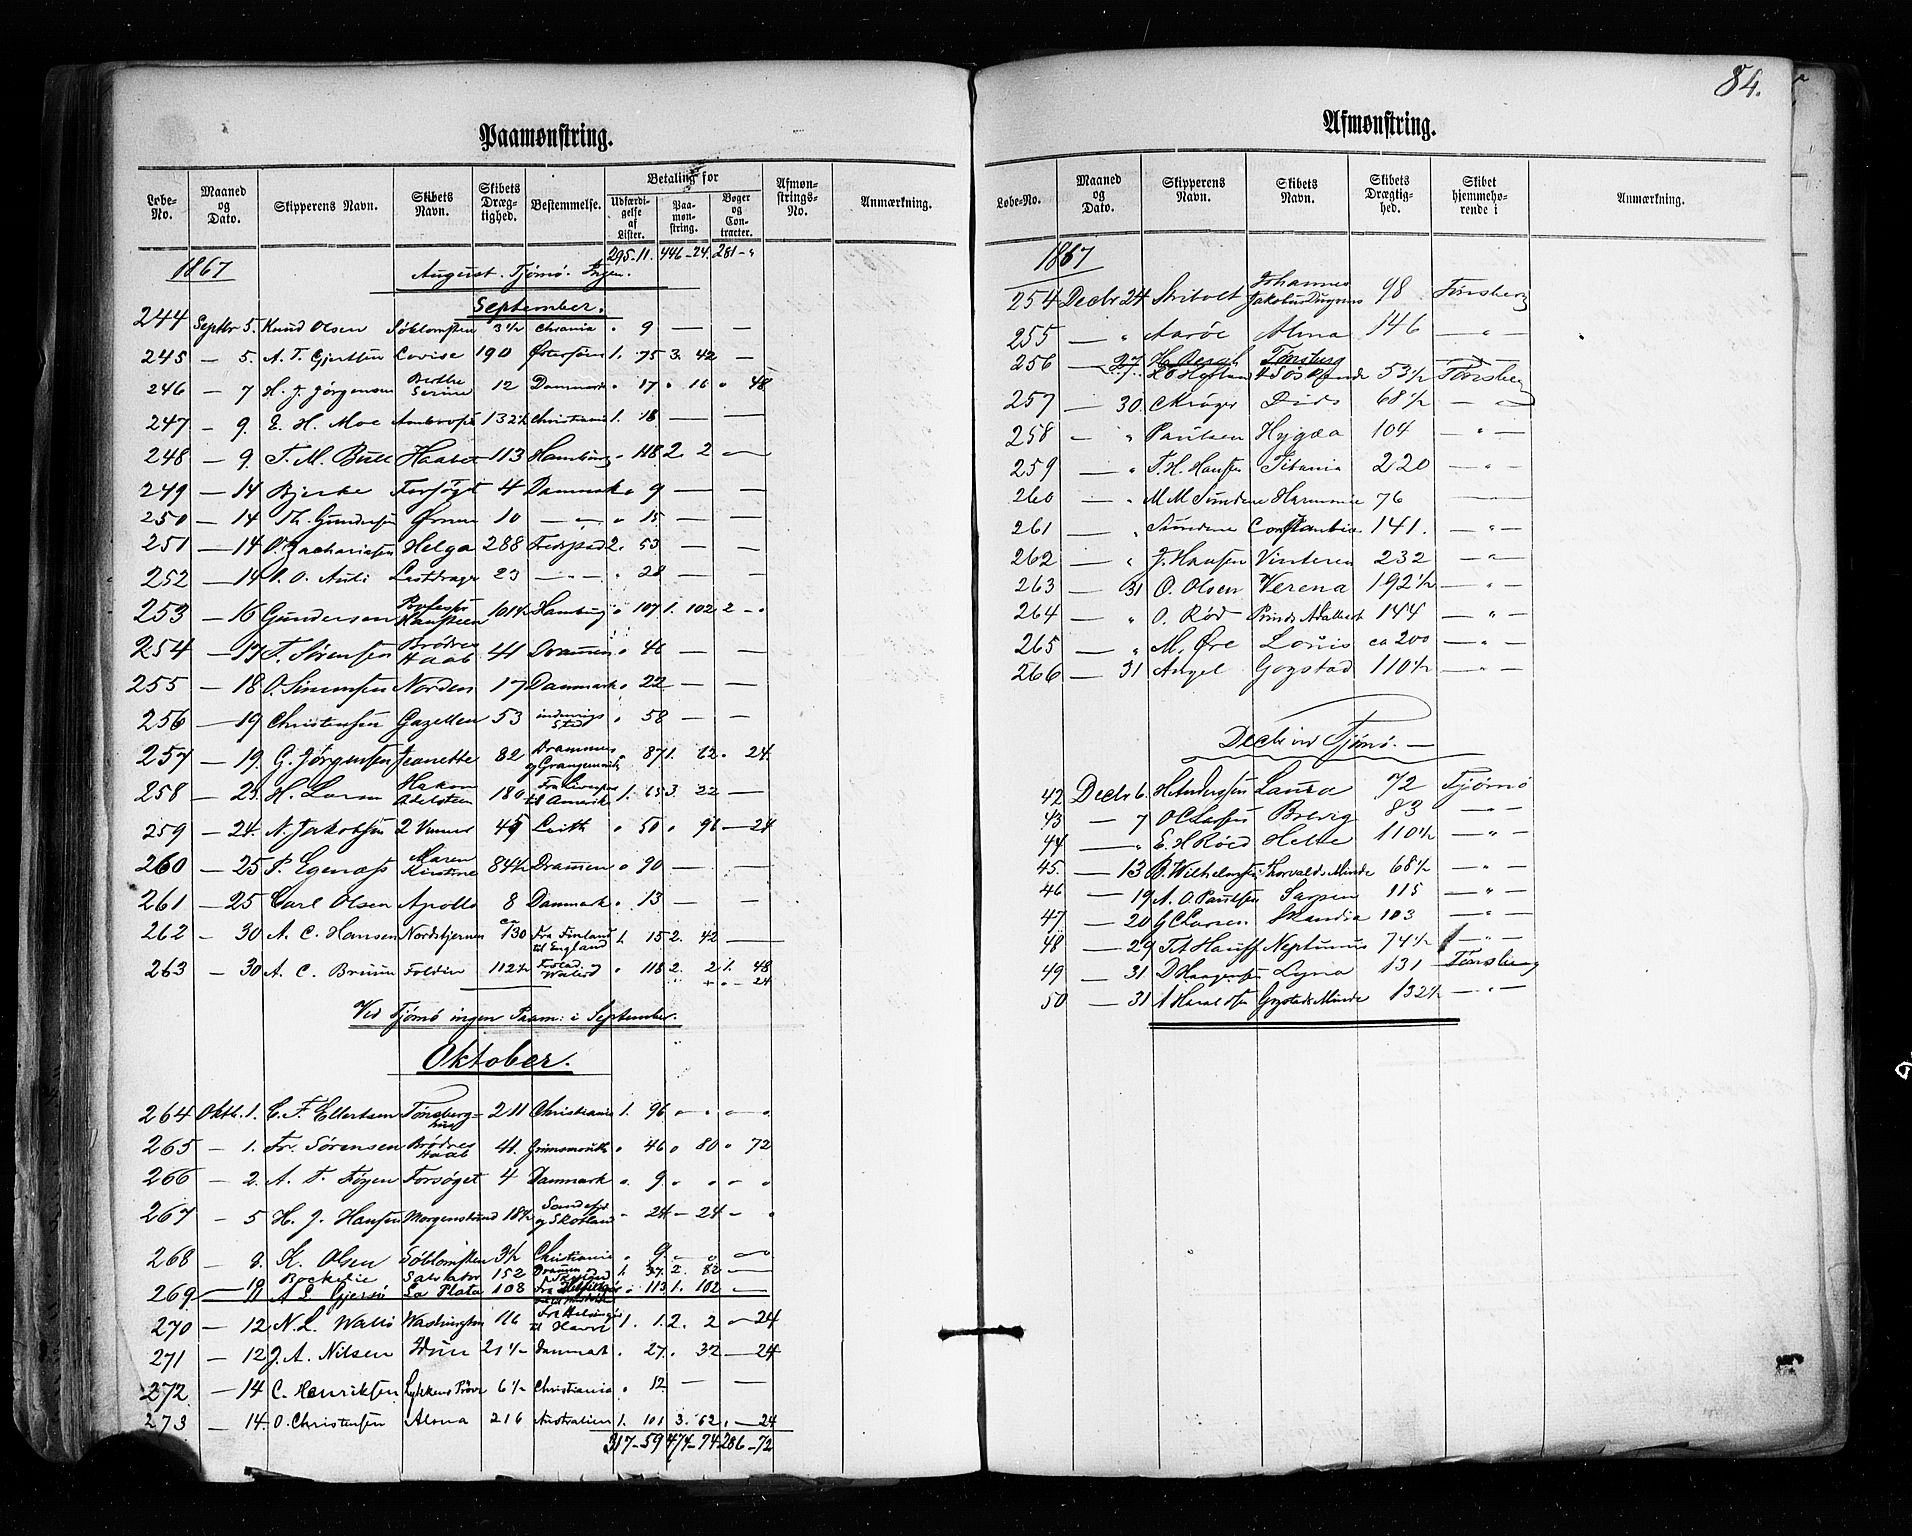 84.
Paamønstring.
Løbe-No. Maaned og Dato. Skipperens Navn. Skibets Navn. Skibets Drægtighed. Bestemmelse. Betaling for Udfærdigelse af Lister. Paamønstring. Bøger og Contracter. Afmønstrings-No. Anmærkning.
295-11. 446-24. 281-"
1867 August. Tjømø. Ingen.
September.
244 Septbr 5. Knud Olsen Søblomsten 3½ Chrania " 9 — —
245 — 5. A. T. Gjertsen Lovise 190 Østersøen 1. 75 3. 42 —
246 — 7 H. J. Jørgensen Berthe Serine 12 Danmark " 17 " 16 " 48
247 — 9. E. H. Moe 132½ Christiania 1. 18 — —
248 — 9. F. M. Bull Haabet 113 Hamburg " 118 2 2 —
249 — 14 Bjerke Forsøgt 4 Danmark " 9 — —
250 — 14 Th. Gundersen Ørnen 10 — " — " 15 — —
251 — 14 O. Zachariasen Helga 288 Fredstad 2. 53 — —
252 — 14 O. O. Auli Lastdrager 23 — " — " 28 — —
253 — 16 Gundersen Professor Hansteen 101½ Hamburg " 107 1. 102 2 - "
254 — 17 F. Sørensen Brødres Haab 41 Drammen " 46 — —
255 — 18 O. Simensen Norden 17 Danmark " 22 — —
256 — 19 Christensen Gazellen 53 indenrigs Sted " 58 — —
257 — 19. G. Jørgensen Jeanette 82 Drammen og Grangemouth " 87 1. 62 " 24.
258 — 21. H. Larsen Hakon Adelsteen 180 til Amerika 1. 65 3. 22 —
259 — 24. N. Jakobsen 2 Venner 45 Leith " 50 " 96 — 24
260 — 25 P. Egenæs Maren Kirstine 84½ Drammen " 90 — —
261 — 25 Carl Olsen Apollo 8 Danmark " 13 — —
262 — 30 A. C. Hansen Nordstjernen ca 130 Fra Finland til England 1. 15 2. 42 —
263 — 30 A. C. Bruun Foldin 112½ " 118 2. 2 1. 48
24
Ved Tjømø ingen Paam: i September.
Oktober.
264 Oktb. 1. C. F. Ellertsen Tønsberghus 211 Christiania 1. 96 — " — "
265 — 1. Fr. Sørensen Brødres Haab 41. Grimsmouth " 46 " 80 " 72
266 — 2. A. T. Føyen Forsøget 4 Danmark " 9 " " — "
267 — 5 H. J. Hansen Morgenstund 18½ Sandefjd og Skotland - 24 — 24 — "
268 — 8. K. Olsen Søblomsten 3½ Christiania " 9. — " —
Bockelie Salvator 152 Drammen og 1. 37. 2. 82 —
269 — 11 A L Gjersø La Plata 108 " 113 1. 102 —
270 — 12 N. L. Wallø Washington 116 Fra Helsingør til Havre 1. 1. 2. 2 — 24
271 — 12 J. A. Nilsen Idun 21½ Danmark " 27. " 32 — 24
272. — 14 C. Henriksen Lykkens Prøve 6½ Christiania " 12 — —
273 — 14. O. Christensen Alma 216 Australien 1. 101 3. 62 " — 24
317-59 474-74 286-72
Afmønstring.
Løbe-No. Maaned og Dato. Skipperens Navn. Skibets Navn. Skibets Drægtighed. Skibet hjemmehørende i Anmærkning.
1867
254 Decbr 24 Stribolt Johannes 98 Tønsberg
255 — " Aarøe Alma 146 — " —
256 — 27. 53½ Tønsberg
257 — 30. Krøger Dido 68½ — " —
258 — " Paulsen Hygæa 104 — " —
259 — " T. H. Hansen Titania 220 — " —
260 — " M M Sundene Harmonie 76 ———
261 — " Sundene Constantia 141. — " —
262 — " J. Hansen Vinteren 232 — " —
263 — 31 O. Olsen Verena 192½ — " —
264 — " O. Rød Prinds Adalbert 144 — " —
265 — " M. Øre Louis ca 200 — " —
266 — 31 Angel Gogstad 110½ — " —
Decbr ved Tjømø. —
42 Decbr 6. H Andersen Laura 72 Tjømø
43 — 7 O C Larsen Brevig 83 — " —
44 — " E. H Røed Helte 110½ — " —
45. — 13 B. Wilhelmsen Thorvalds Minde 68½ — " —
46 — 19 A. O. Paulsen Sarpen 115 — " —
47 — 20 G C Larsen Skandia 103 — " —
48 — 29 Tet Hauff Neptunus 74½ — " —
49 — 31. D. Haagensen Lyna 131 Tønsberg
50 — 31 A Haraldsen Gogstads Minde 132½ — " —